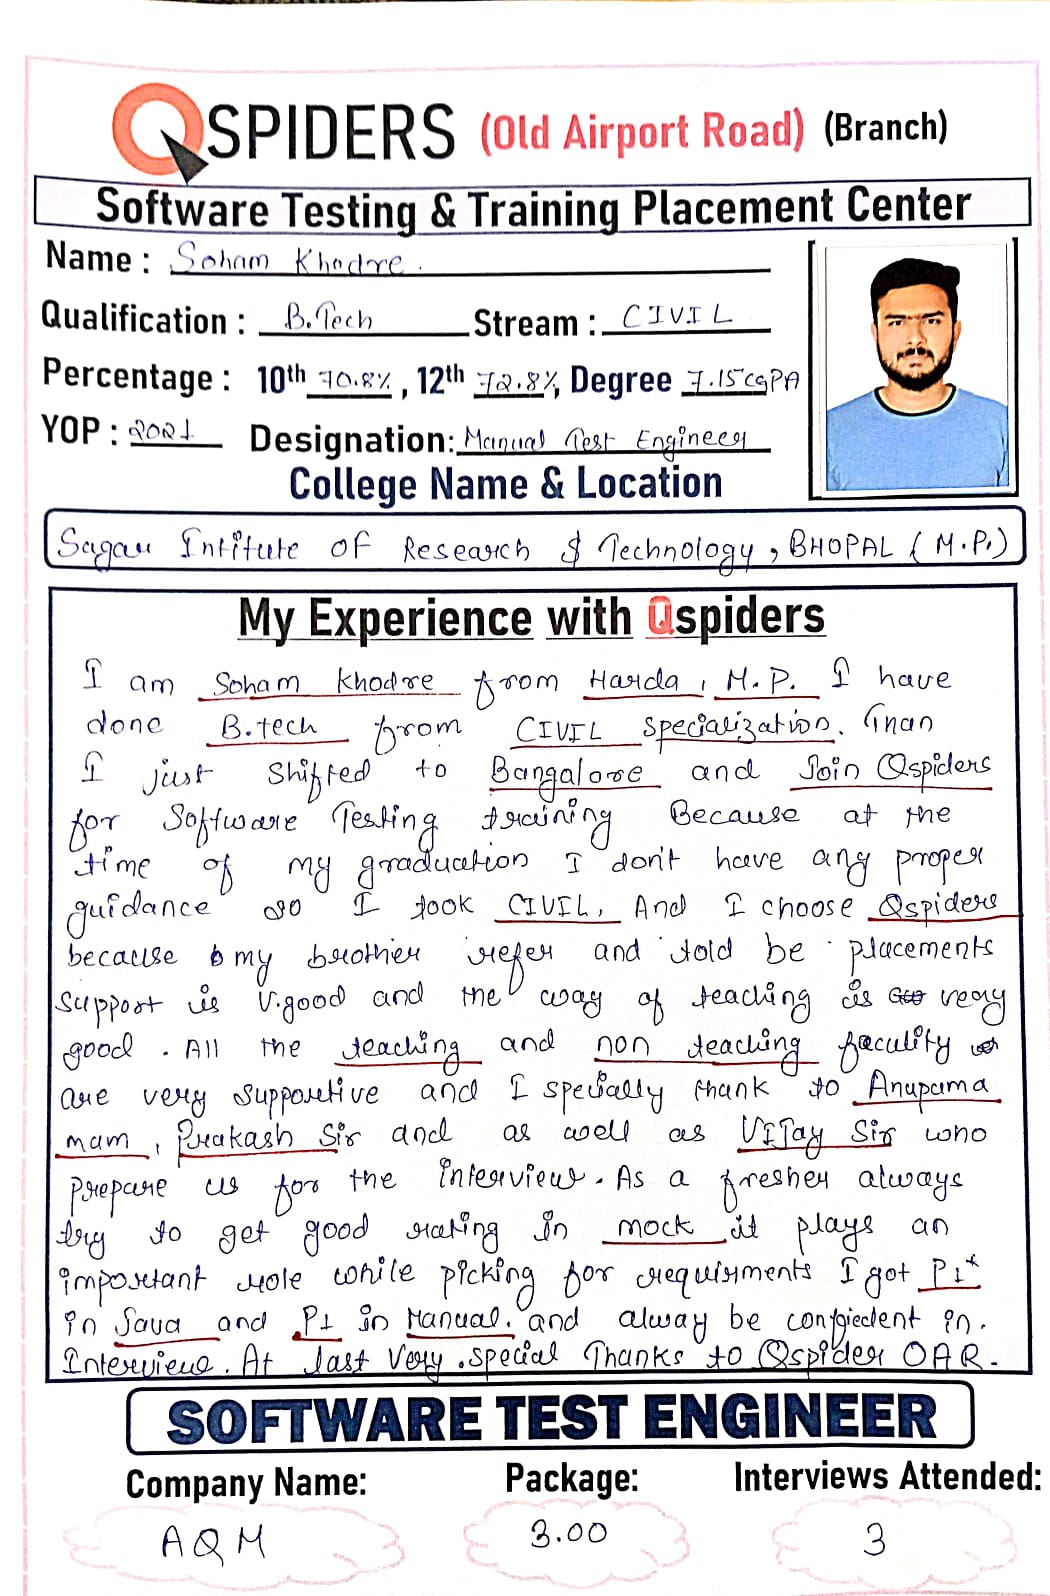 QSPIDERS (Old Airport Road) (Branch)
Software Testing & Training Placement Center
Name : Soham Khodre.
Qualification : B.Tech Stream : CIVIL
Percentage : 10th 70.8%, 12th 72.8%, Degree 7.15 CGPA
YOP : 2021 Designation: Manual Test Engineer
College Name & Location
Sagar Intitute OF Research & Technology, BHOPAL (M.P.)
My Experience with Qspiders
I am Soham Khodre from Harda, M.P. I have
done B.tech from CIVIL specialization. Than
I just shifted to Bangalore and Join Qspiders
for Software Testing training Because at the
time of my graduation I don't have any proper
guidance so I took CIVIL, And I choose Qspiders
because my brother refer and told be placements
support is V.good and the way of teaching is very
good. All the teaching and non teaching faculity
are very supportive and I specially thank to Anupama
mam, Prakash Sir and as well as VIJay Sir who
prepare us for the interview. As a fresher always
try to get good rating in mock it plays an
important role while picking for requirments I got P1*
in Java and P1 in Manual. and alway be confiedent in.
Interview. At last Very special Thanks to Qspider OAR.
SOFTWARE TEST ENGINEER
Company Name: Package: Interviews Attended:
AQM 3.00 3